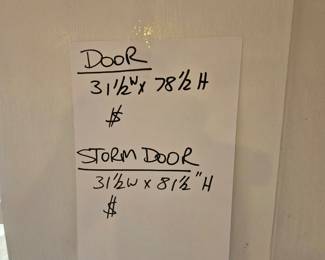 DOOR
31½"W x 78½ H
$
STORM DOOR
31½W x 81½" H
$